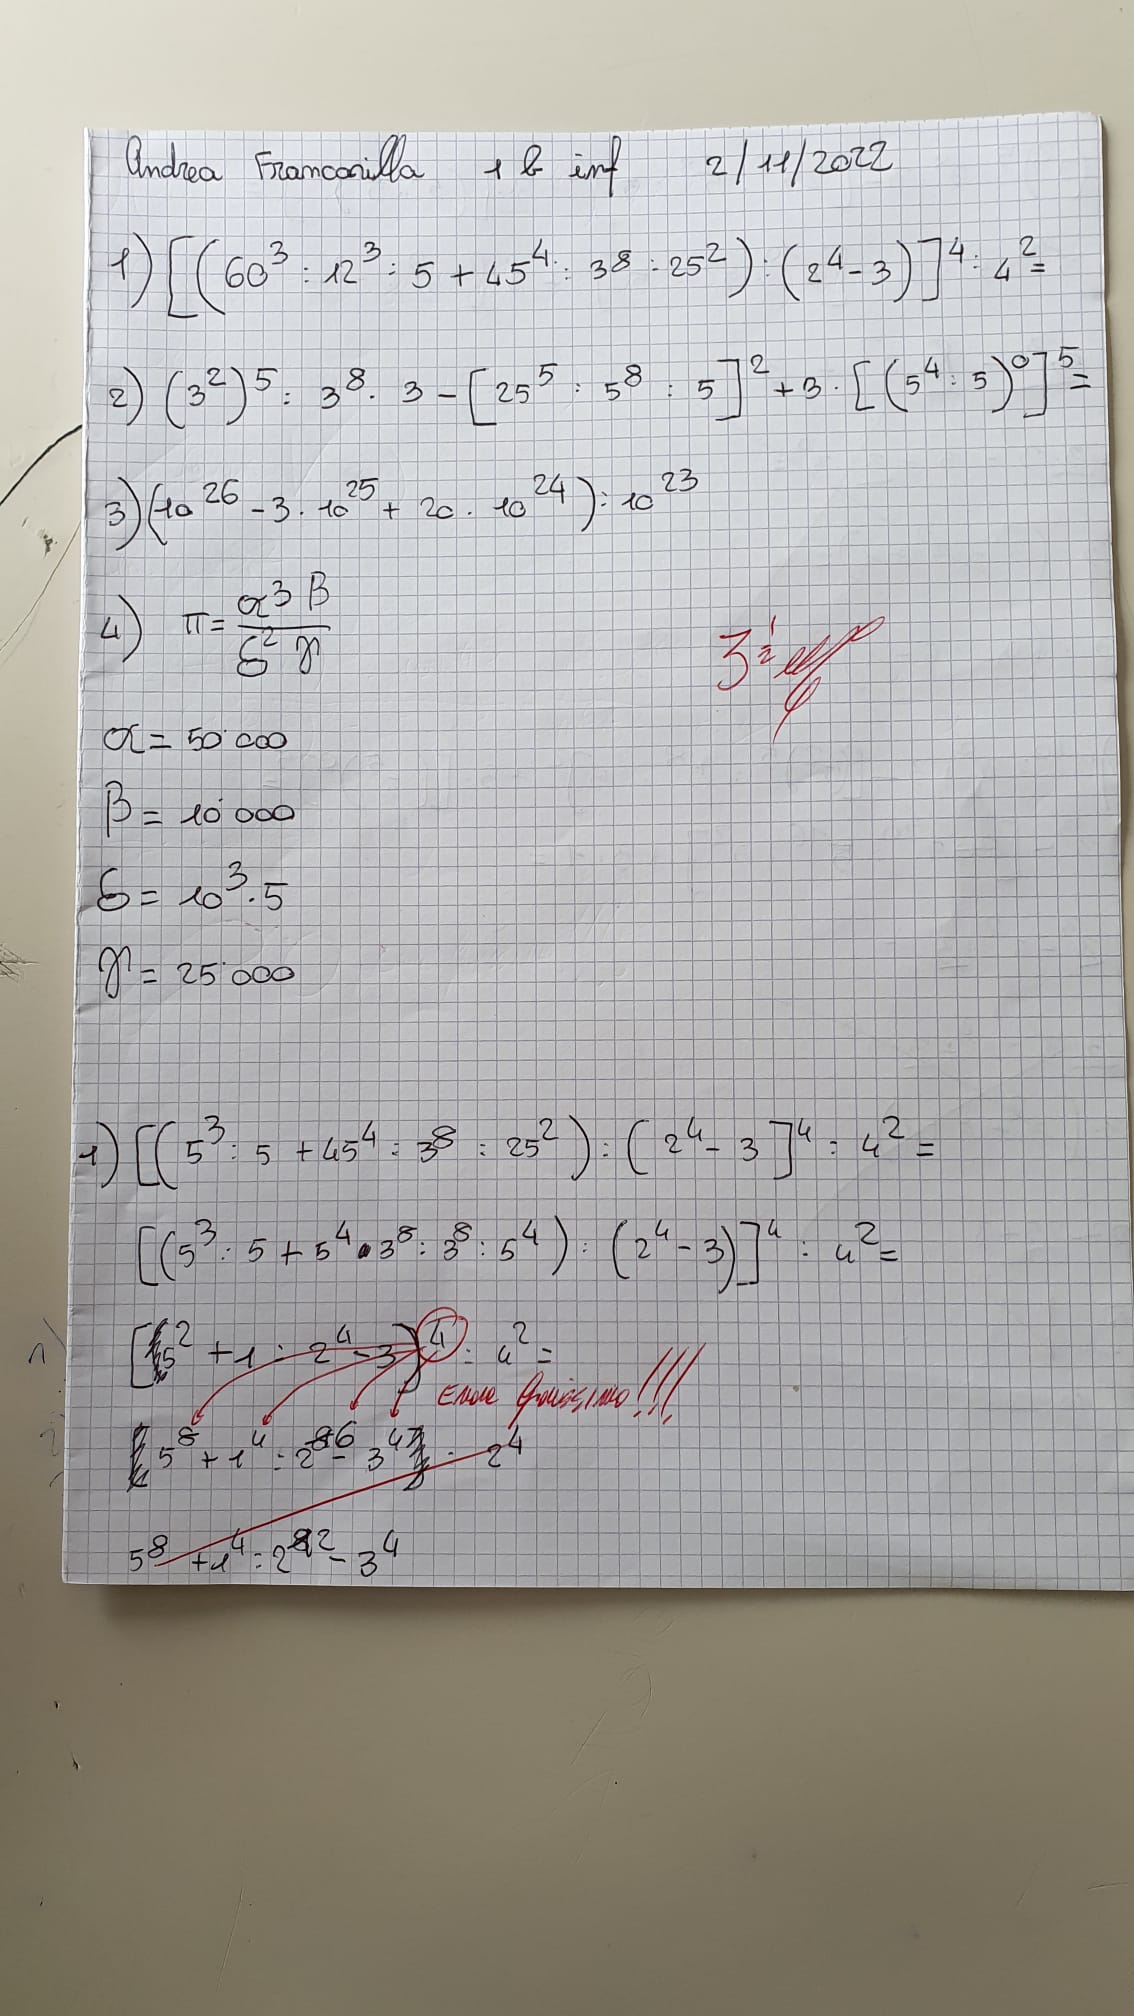 Andrea Franconilla 1 b inf 2/11/2022
1) [(60³ : 12³ : 5 + 45⁴ : 3⁸ : 25²) : (2⁴ - 3)]⁴ : 4² =
2) (3²)⁵ : 3⁸ · 3 - [25⁵ : 5⁸ : 5]² + 3 · [(5⁴ : 5)⁰]⁵ =
3) (10²⁶ - 3 · 10²⁵ + 20 · 10²⁴) : 10²³
4) π = α³ β / δ² γ
3 ½
α = 50'000
β = 10'000
δ = 10³ · 5
γ = 25'000
1) [(5³ : 5 + 45⁴ : 3⁸ : 25²) : (2⁴ - 3]⁴ : 4² =
[(5³ : 5 + 5⁴ · 3⁸ : 3⁸ : 5⁴) : (2⁴ - 3)]⁴ : 4² =
[5² + 1 : 2⁴ - 3)⁴ : 4² =
Errore gravissimo!!!
5⁸ + 1⁴ : 2¹⁶ - 3⁴ : 2⁴
5⁸ + 1⁴ : 2¹² - 3⁴